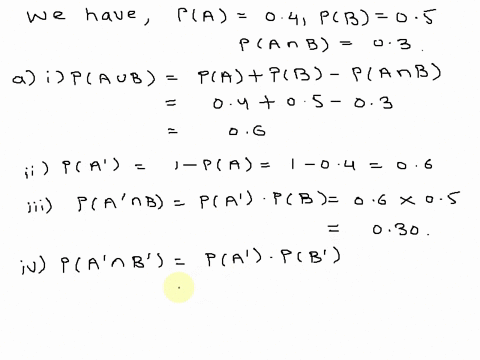 We have, P(A) = 0.4, P(B) = 0.5
P(A∩B) = 0.3.
a) i) P(A∪B) = P(A) + P(B) - P(A∩B)
= 0.4 + 0.5 - 0.3
= 0.6
ii) P(A') = 1-P(A) = 1-0.4 = 0.6
iii) P(A'∩B) = P(A') · P(B) = 0.6 × 0.5
= 0.30.
iv) P(A'∩B') = P(A') · P(B')